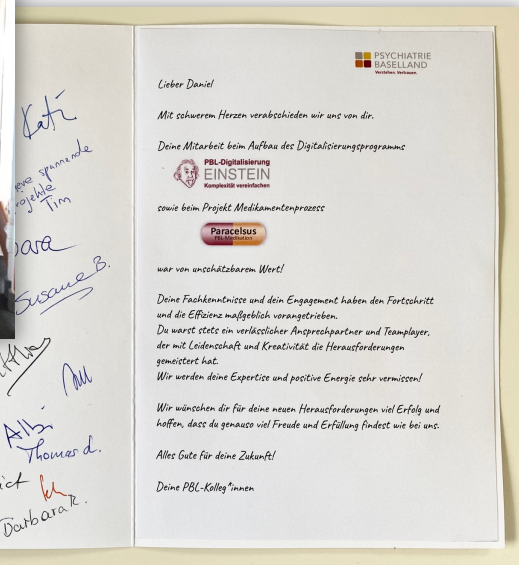 Kati
neue spannende
Projekte
Tim
bara
Susanne B.
Albi
Thomas d.
Barbara R.
PSYCHIATRIE
BASELLAND
Verstehen. Vertrauen.
Lieber Daniel
Mit schwerem Herzen verabschieden wir uns von dir.
Deine Mitarbeit beim Aufbau des Digitalisierungsprogramms
PBL-Digitalisierung
EINSTEIN
Komplexität vereinfachen
sowie beim Projekt Medikamentenprozess
Paracelsus
PBL-Medikation
war von unschätzbarem Wert!
Deine Fachkenntnisse und dein Engagement haben den Fortschritt
und die Effizienz maßgeblich vorangetrieben.
Du warst stets ein verlässlicher Ansprechpartner und Teamplayer,
der mit Leidenschaft und Kreativität die Herausforderungen
gemeistert hat.
Wir werden deine Expertise und positive Energie sehr vermissen!
Wir wünschen dir für deine neuen Herausforderungen viel Erfolg und
hoffen, dass du genauso viel Freude und Erfüllung findest wie bei uns.
Alles Gute für deine Zukunft!
Deine PBL-Kolleg*innen